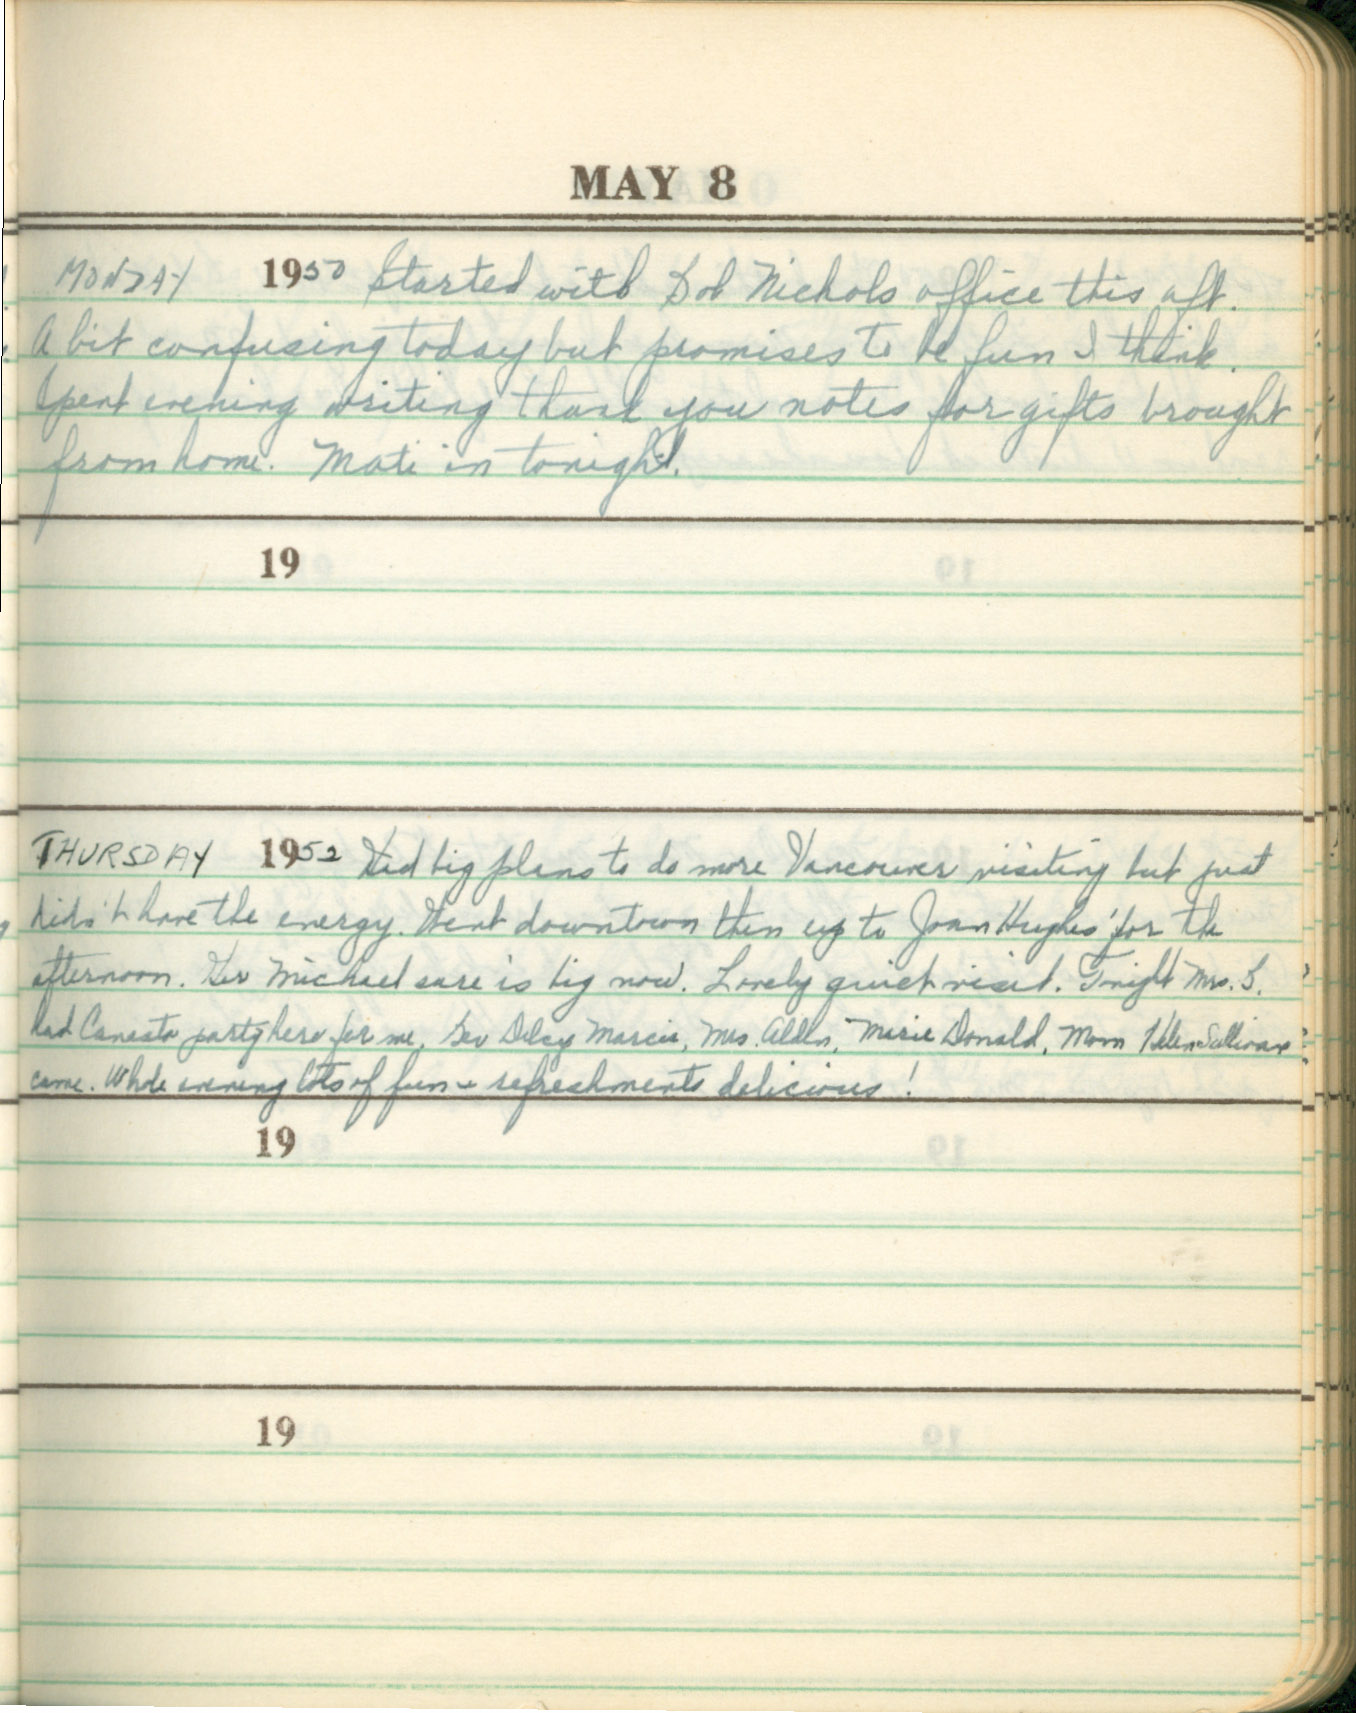 MAY 8
MONDAY 1950 Started with Bob Nichols office this aft.
A bit confusing today but promises to be fun I think.
Spent evening writing thank you notes for gifts brought
from home. Mati in tonight.
19
THURSDAY 1952 Had big plans to do more Vancouver visiting but just
didn't have the energy. Went downtown then up to Joan Hughes' for the
afternoon. Her Michael sure is big now. Lovely quiet visit. Tonight Mrs. S.
had Canasta party here for me. Bev Marcia, Mrs. Alden, Marie Donald, Mom Helen Sullivan
came. Whole evening lots of fun + refreshments delicious!
19
19